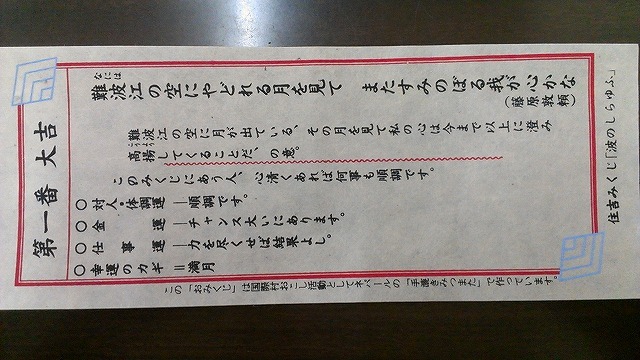 住吉みくじ「波のしらゆふ」
第一番 大吉
難波江の空にやどれる月を見て またすみのぼる我が心かな
なには
(藤原敦頼)
難波江の空に月が出ている、その月を見て私の心は今まで以上に澄み
高揚してくることだ、の意。
このみくじにあう人、心清くあれば何事も順調です。
○対人・体調運―順調です。
○金運―チャンス大いにあります。
○仕事運―力を尽くせば結果よし。
○幸運のカギ=満月
この「おみくじ」は国際村おこし活動としてネパールの「手漉きみつまた」で作っています。